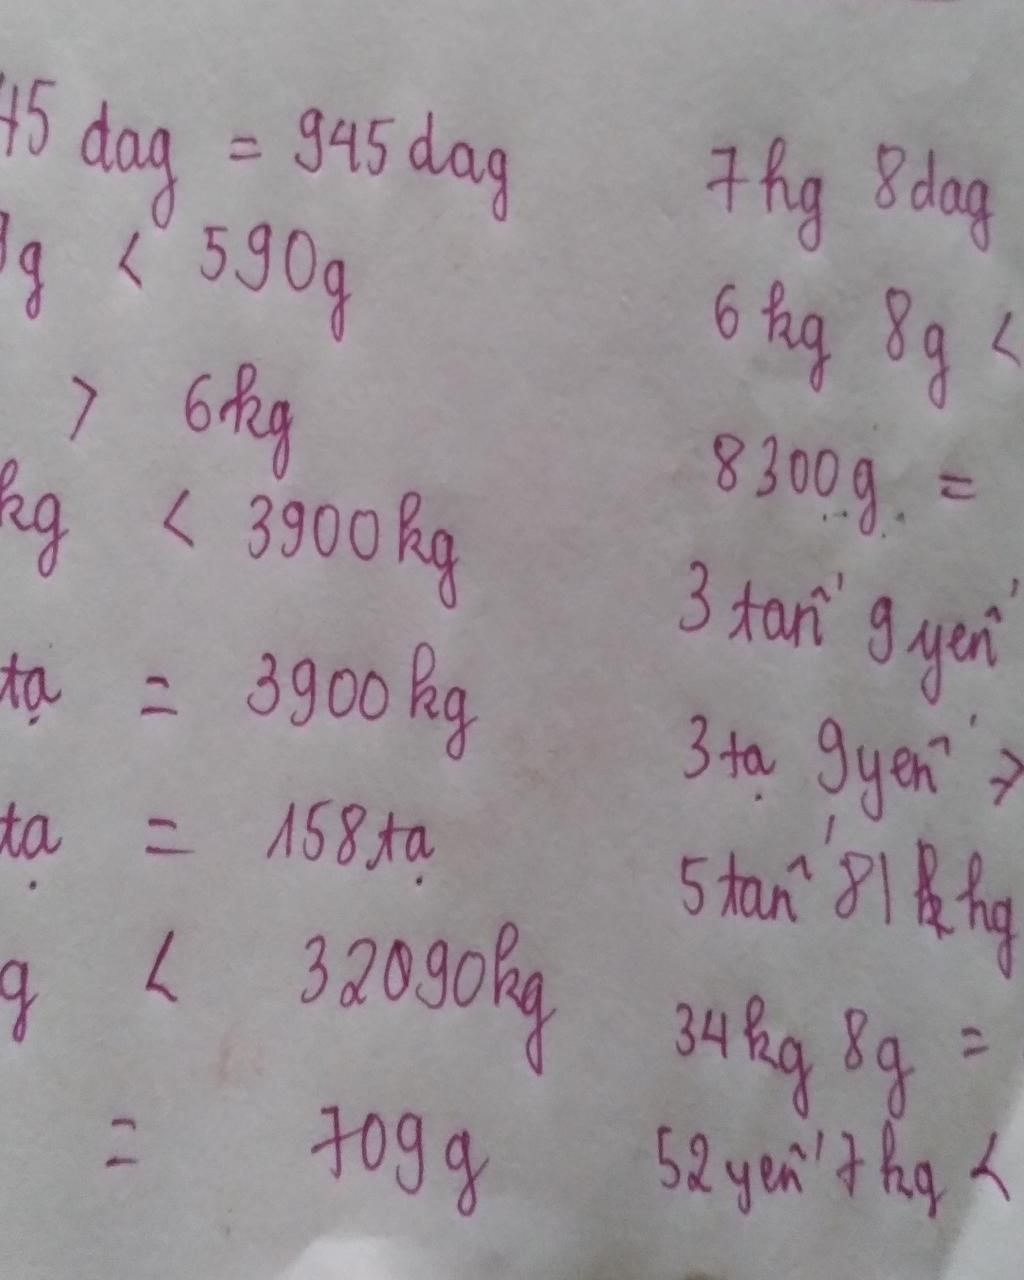 45 dag = 945 dag
g < 590g
> 6kg
kg < 3900 kg
tạ = 3900 kg
tạ = 158 tạ
g < 32090kg
= 709 g
7 hg 8 dag
6 kg 8g <
8300g =
3 tấn 9 yến
3 tạ 9 yến >
5 tấn 81 kg
34 kg 8g =
52 yến 7 kg <